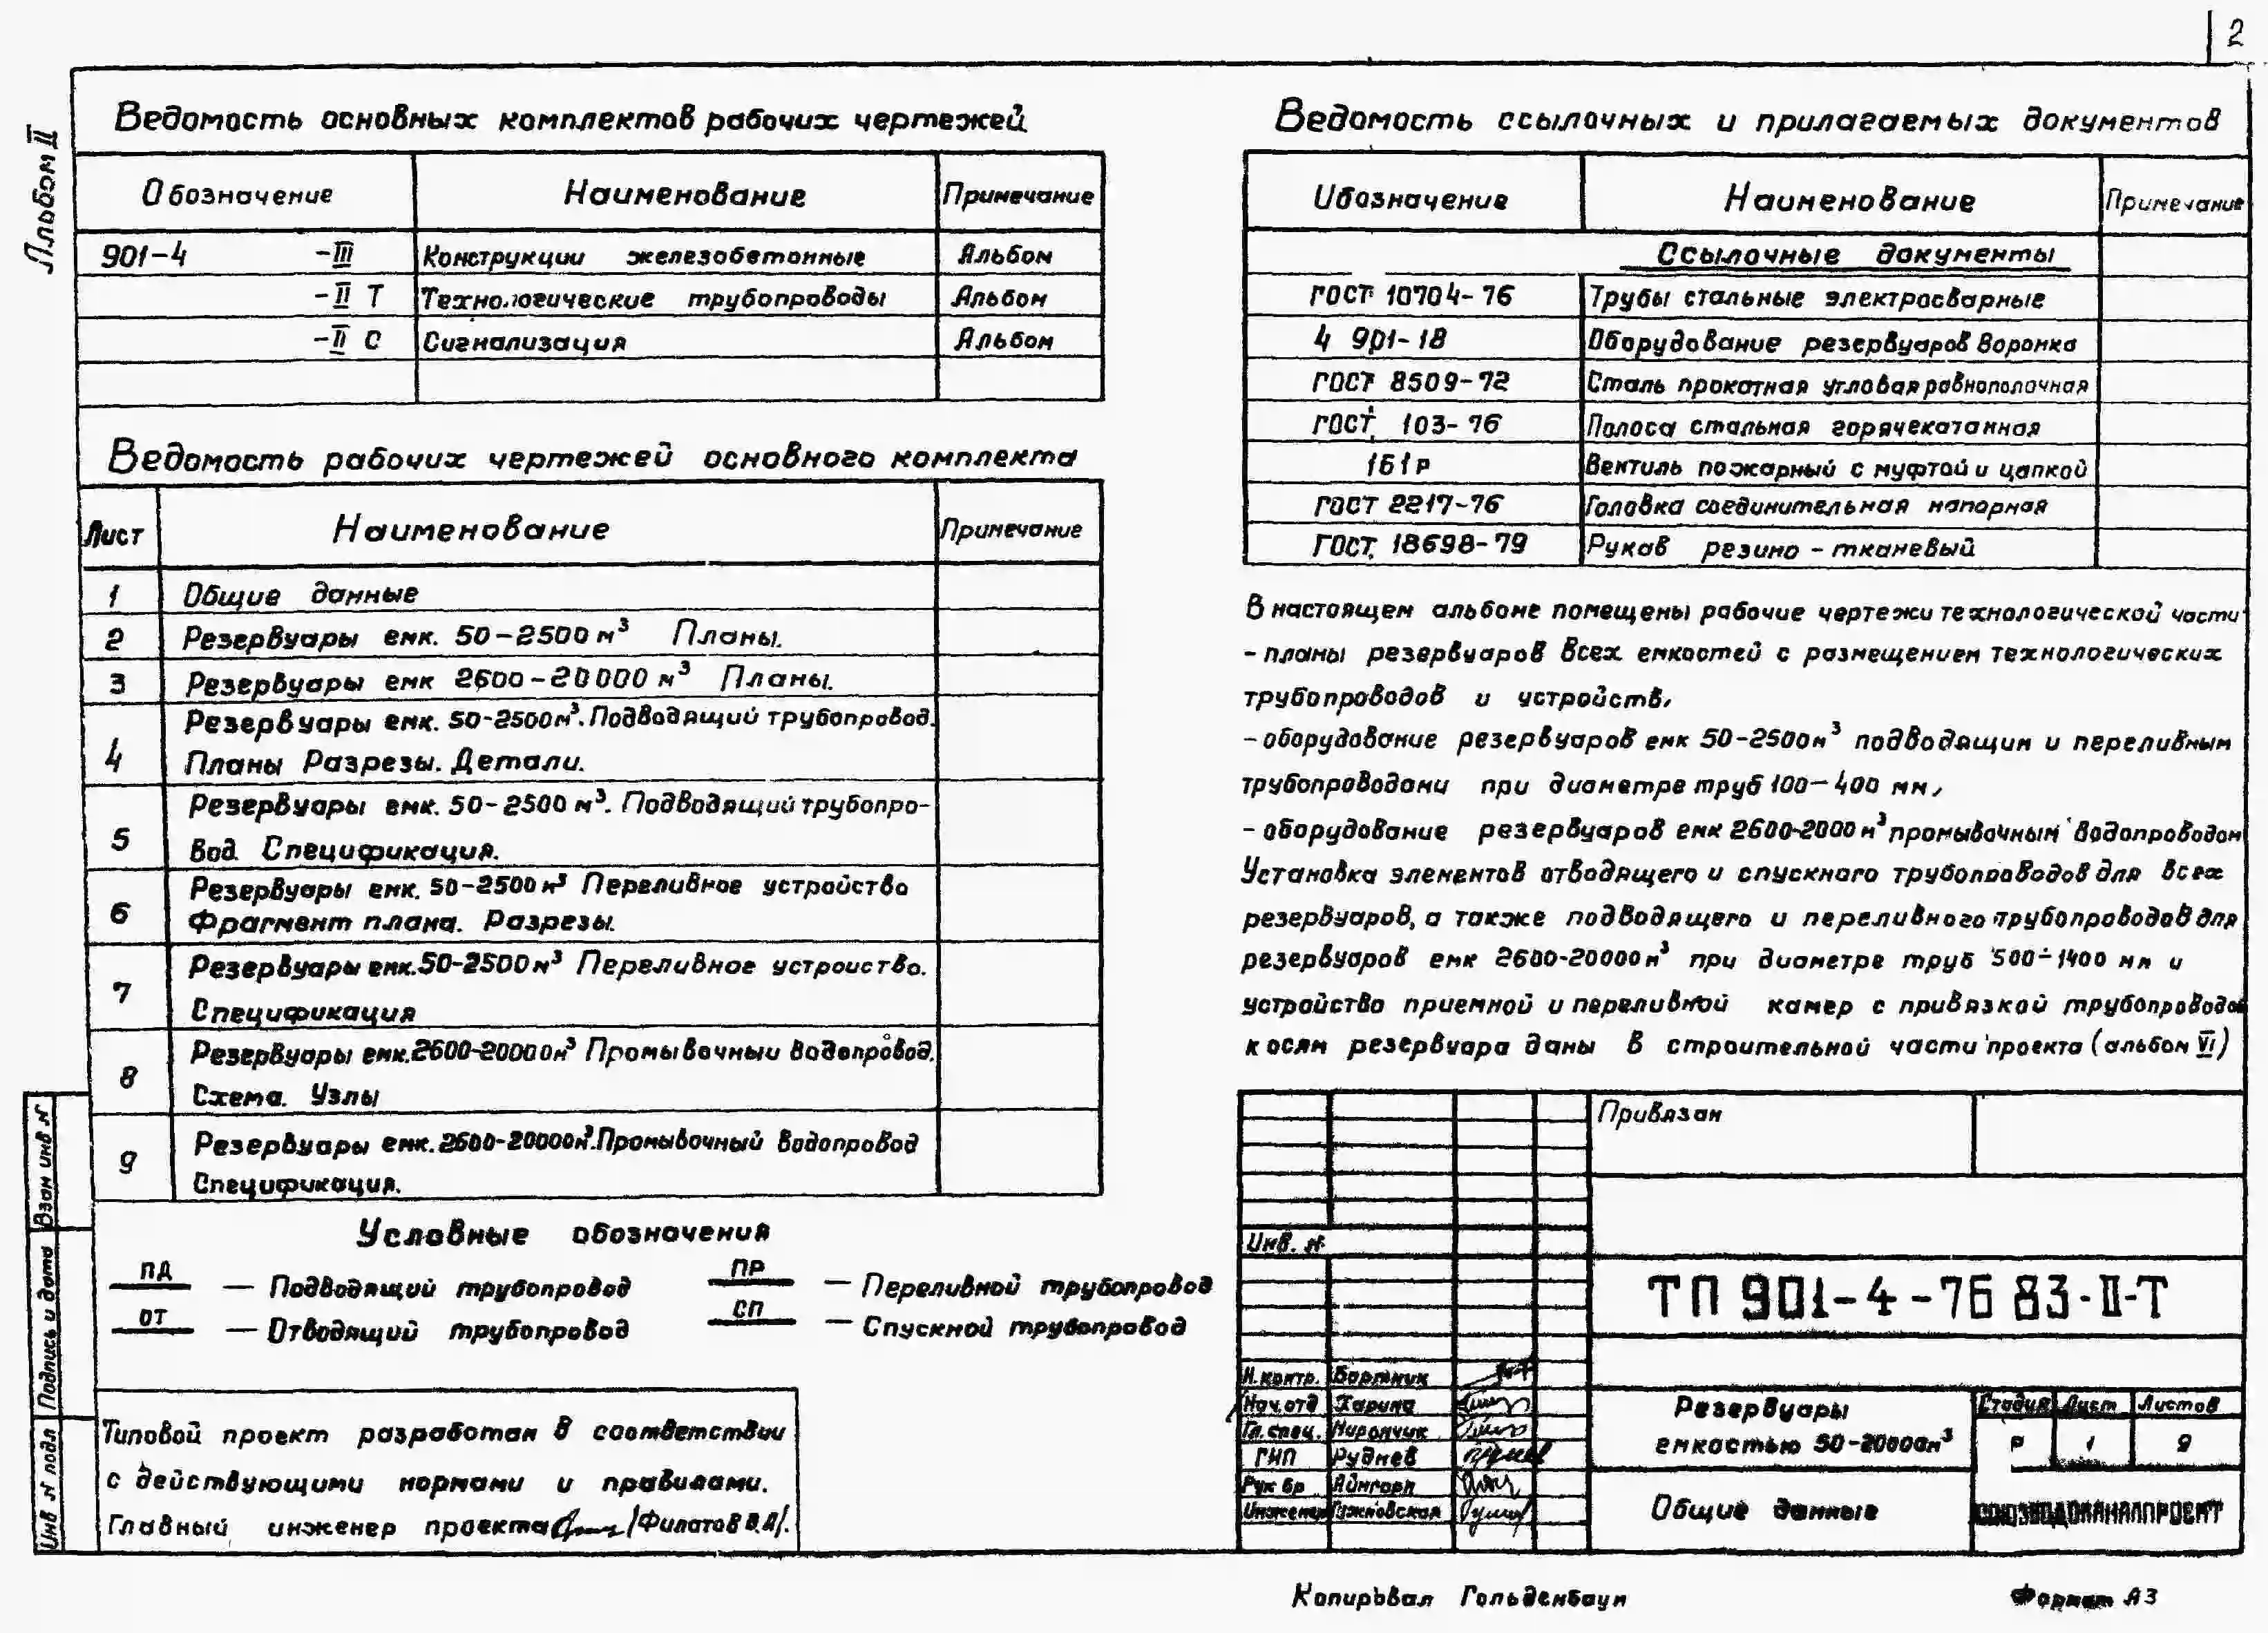 2
Альбом II
Ведомость основных комплектов рабочих чертежей
Обозначение Наименование Примечание
901-4 -III Конструкции железобетонные Альбом
-II Т Технологические трубопроводы Альбом
-II С Сигнализация Альбом
Ведомость рабочих чертежей основного комплекта
Лист Наименование Примечание
1 Общие данные
2 Резервуары емк. 50-2500 м³ Планы.
3 Резервуары емк 2600-20000 м³ Планы.
4 Резервуары емк. 50-2500м³. Подводящий трубопровод.
Планы Разрезы. Детали.
5 Резервуары емк. 50-2500 м³. Подводящий трубопро-
вод. Спецификация.
6 Резервуары емк. 50-2500 м³ Переливное устройство
Фрагмент плана. Разрезы.
7 Резервуары емк. 50-2500 м³ Переливное устройство.
Спецификация
8 Резервуары емк. 2600-20000м³ Промывочный водопровод.
Схема. Узлы
9 Резервуары емк. 2600-20000м³. Промывочный водопровод
Спецификация.
Условные обозначения
ПД — Подводящий трубопровод
ОТ — Отводящий трубопровод
ПР — Переливной трубопровод
СП — Спускной трубопровод
Типовой проект разработан в соответствии
с действующими нормами и правилами.
Главный инженер проекта /Филатов В.А/.
Взам инв N
Подпись и дата
Инв N подл
Ведомость ссылочных и прилагаемых документов
Обозначение Наименование Примечание
Ссылочные документы
ГОСТ 10704-76 Трубы стальные электросварные
4 901-18 Оборудование резервуаров Воронка
ГОСТ 8509-72 Сталь прокатная угловая равнополочная
ГОСТ 103-76 Полоса стальная горячекатанная
1б1р Вентиль пожарный с муфтой и цапкой
ГОСТ 2217-76 Головка соединительная напорная
ГОСТ 18698-79 Рукав резино-тканевый
В настоящем альбоме помещены рабочие чертежи технологической части
- планы резервуаров всех емкостей с размещением технологических
трубопроводов и устройств,
- оборудование резервуаров емк 50-2500м³ подводящим и переливным
трубопроводами при диаметре труб 100-400 мм,
- оборудование резервуаров емк 2600-2000 м³ промывочным водопроводом
Установка элементов отводящего и спускного трубопроводов для всех
резервуаров, а также подводящего и переливного трубопроводов для
резервуаров емк 2600-20000м³ при диаметре труб 500-1400 мм и
устройство приемной и переливной камер с привязкой трубопроводов
к осям резервуара даны в строительной части проекта (альбом VI)
Привязан
Инв. N
ТП 901-4-76 83-II-Т
Н.контр. Бортник
Нач.отд Харина
Гл.спец. Мирончик
ГИП Руднев
Рук бр Айнгорн
Инженер Гижновская
Резервуары
емкостью 50-20000м³
Стадия Лист Листов
Р 1 9
Общие данные
СОЮЗВОДОКАНАЛПРОЕКТ
Копировал Гольденбаум
Формат А3